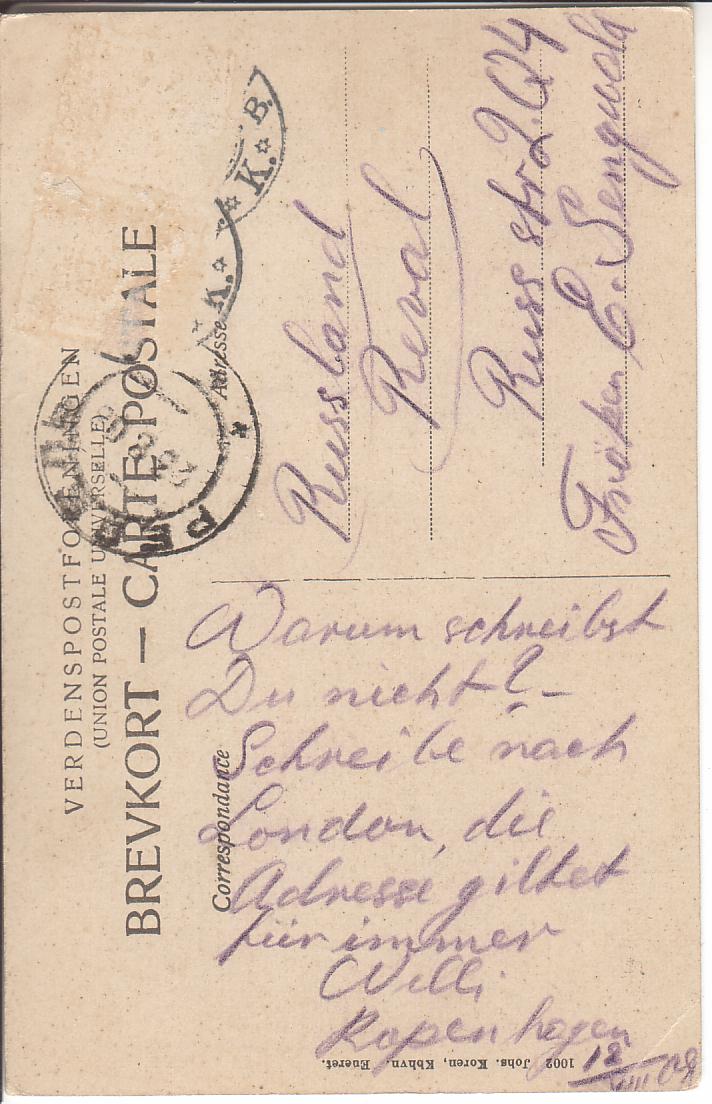 VERDENSPOSTFORENINGEN
(UNION POSTALE UNIVERSELLE)
BREVKORT — CARTE POSTALE
Correspondance
Adresse
Warum schreibst
Du nicht? –
Schreibe nach
London, die
Adresse giltet
für immer
Willi
Kopenhagen
18
VIII 08
Russland
Reval
Russ str
Fröken E. Sengwald
K. K. B.
1002 Johs. Koren, Kbhvn. Eneret.